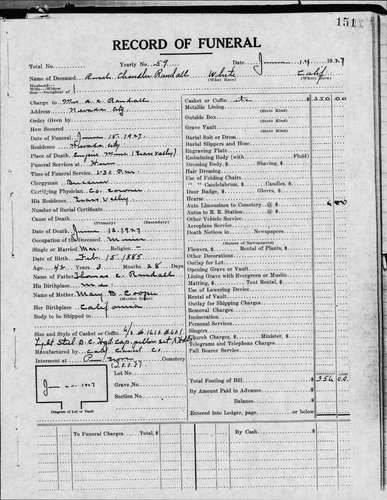 151
RECORD OF FUNERAL
Total No. Yearly No. 59 Date June 14 1927
Name of Deceased Chandler Randall White Calif
(What Race) (Where Born)
Husband—
Wife—Widow
Son—Daughter of
Charge to Mrs. Randall
Address Nevada City
Order Given by
How Secured
Date of Funeral June 15, 1927.
Residence Nevada City
Place of Death Empire Mine (Grass Valley)
Funeral Services at Home
Time of Funeral Service 2:30 P.M.
Clergyman
Certifying Physician Co. Coroner
His Residence Grass Valley
Number of Burial Certificate
Cause of Death
(Primary) (Secondary)
Date of Death June 12, 1927
Occupation of the Deceased Miner
Single or Married Mar. Religion
Date of Birth Feb. 15, 1885
Age 42 Years 3 Months 28 Days
Name of Father Thomas C. Randall
His Birthplace
Name of Mother Mary D. Cooper
(Maiden Name)
Her Birthplace California
Body to be Shipped to
Size and Style of Casket or Coffin
Manufactured by Calif. Co.
Interment at Pine Grove Cemetery
Lot No.
Grave No.
Section No.
Diagram of Lot or Vault
Casket or Coffin etc $ 350 00
Metallic Lining
(State Kind)
Outside Box
(State Kind)
Grave Vault
(State Kind)
Burial Suit or Dress
Burial Slippers and Hose
Engraving Plate
Embalming Body (with Fluid)
Dressing Body, $ Shaving, $
Hair Dressing
Use of Folding Chairs
" Candelabrum, $ Candles, $
Door Badge, $ Gloves, $
Hearse
Auto Limousines to Cemetery @ $
Autos to R. R. Station @ $
Other Vehicle Service
Aeroplane Service
Death Notices in
(Names of Newspapers)
Flowers, $ Rental of Plants, $
Other Decorations
Outlay for Lot
Opening Grave or Vault
Lining Grave with Evergreen or Muslin
Matting, $ Tent Rental, $
Use of Lowering Device
Rental of Vault
Outlay for Shipping Charges
Removal Charges
Incineration
Personal Services
Singers
Church Charges, $ Minister, $
Telegrams and Telephone Charges
Pall Bearer Service
Total Footing of Bill $ 356 00
By Amount Paid in Advance
Balance
Entered into Ledger, page or below.
To Funeral Charges Total $ By Cash $